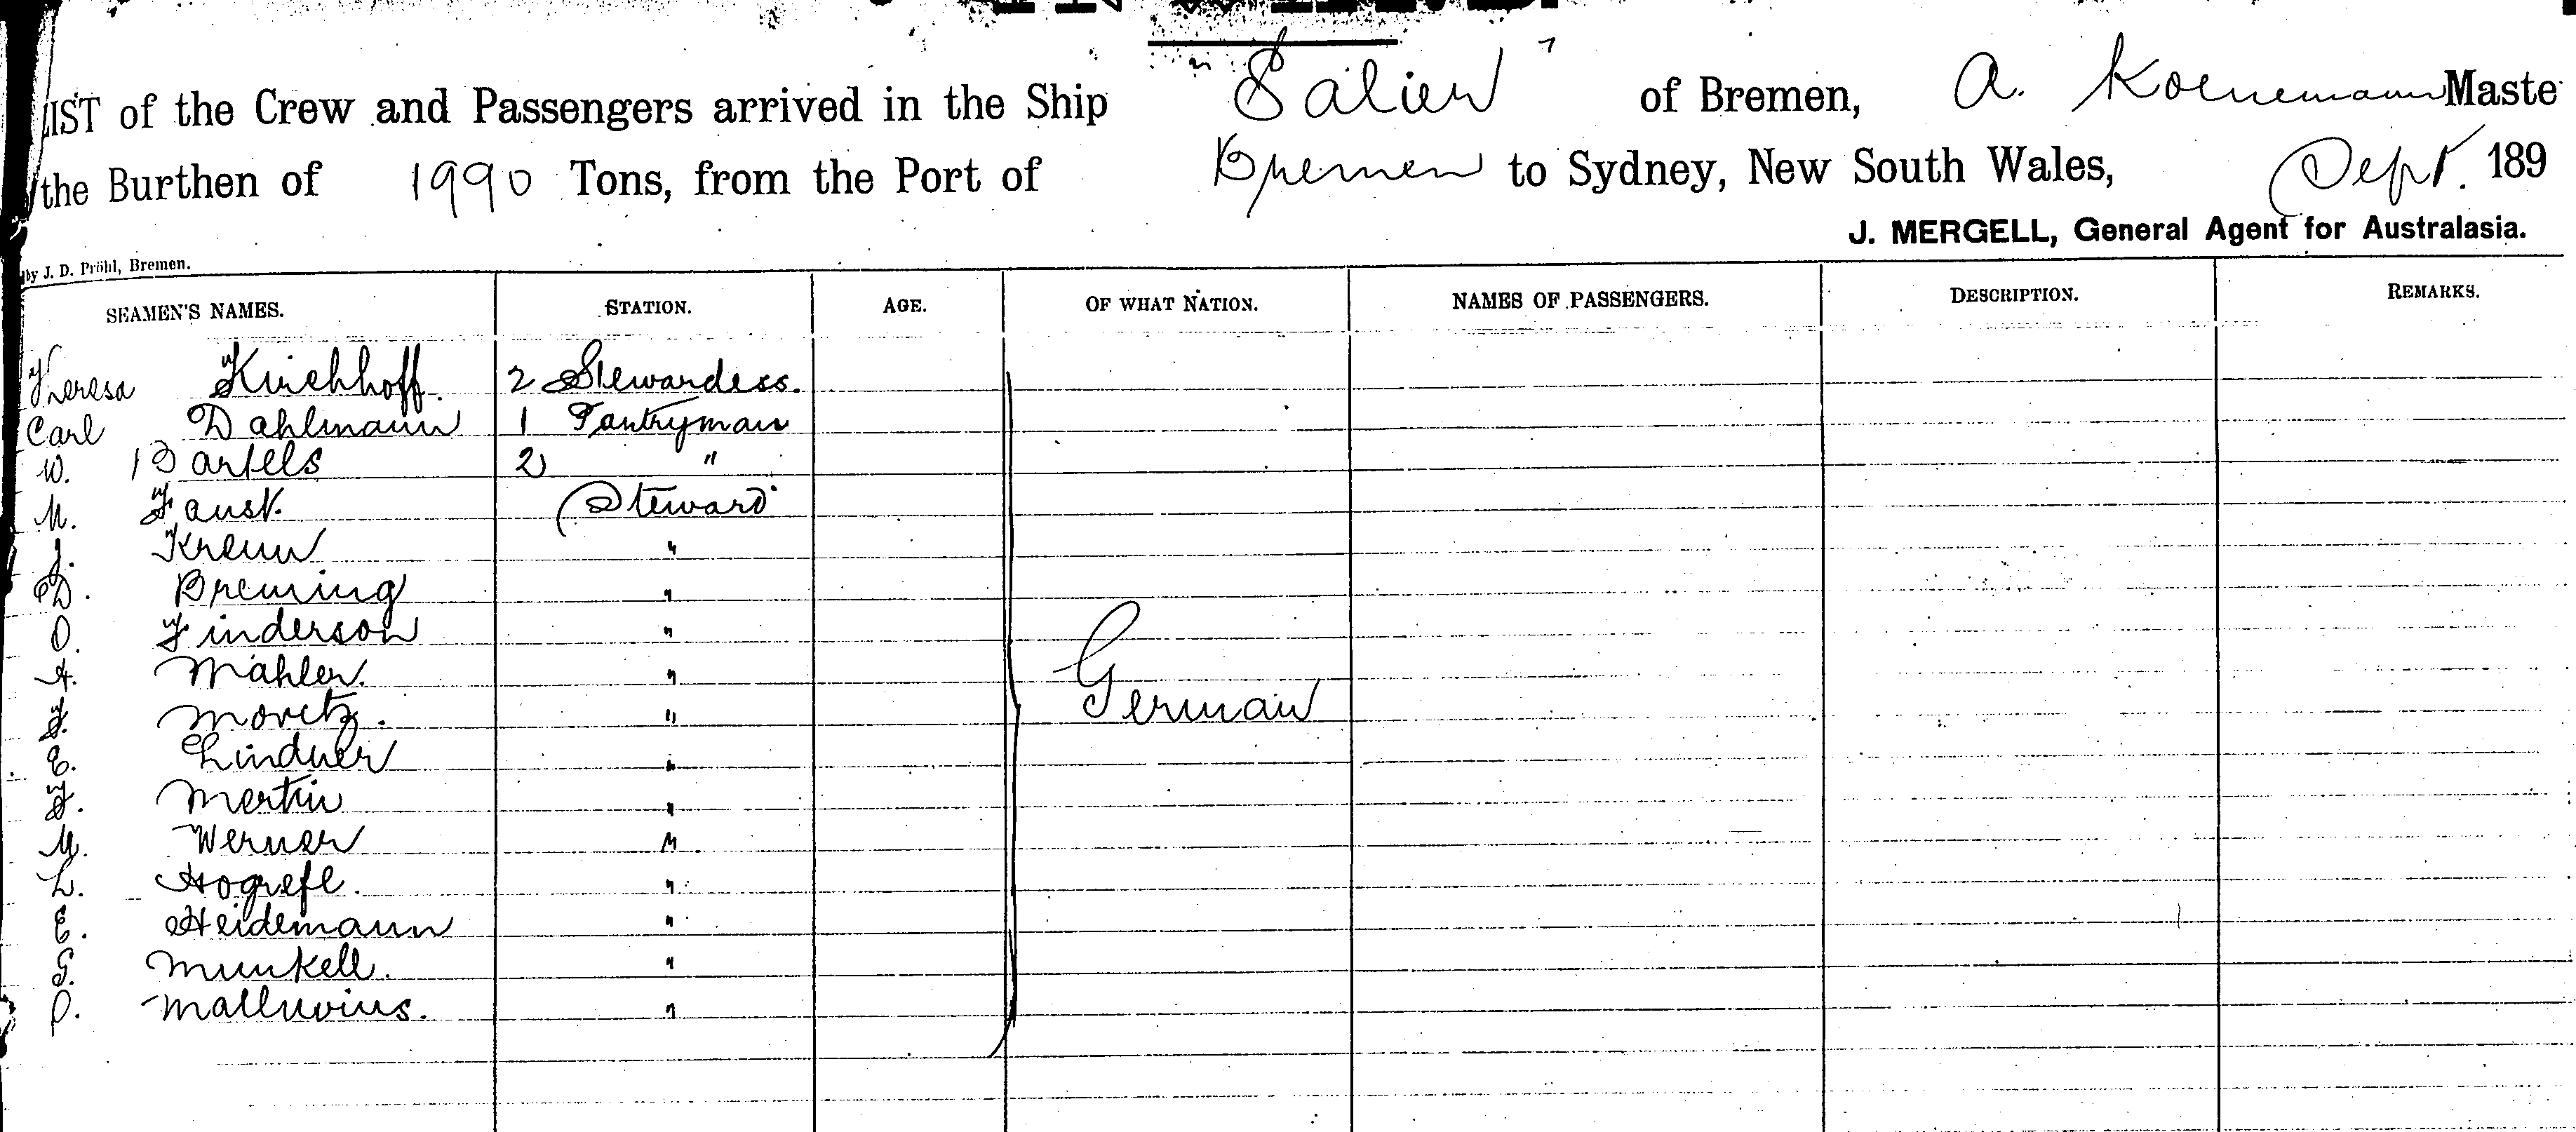 LIST of the Crew and Passengers arrived in the Ship "Salier" of Bremen, A. Koenemann Maste
the Burthen of 1990 Tons, from the Port of Bremen to Sydney, New South Wales, Sept. 189
J. MERGELL, General Agent for Australasia.
by J. D. Pröhl, Bremen.
SEAMEN'S NAMES. STATION. AGE. OF WHAT NATION. NAMES OF PASSENGERS. DESCRIPTION. REMARKS.
Theresa Kirchhoff. 2 Stewardess.
Carl Dahlmann 1 Pantryman
W. Bartels 2 "
M. Faust. Steward
J. Kreun "
D. Breming "
O. Finderson "
A. Mahler. "
F. Moritz. "
E. Lindner "
F. Mertin "
M. Werner "
L. Hogrefe. "
E. Heidemann "
G. Munkell. "
O. Malluvius. "
German